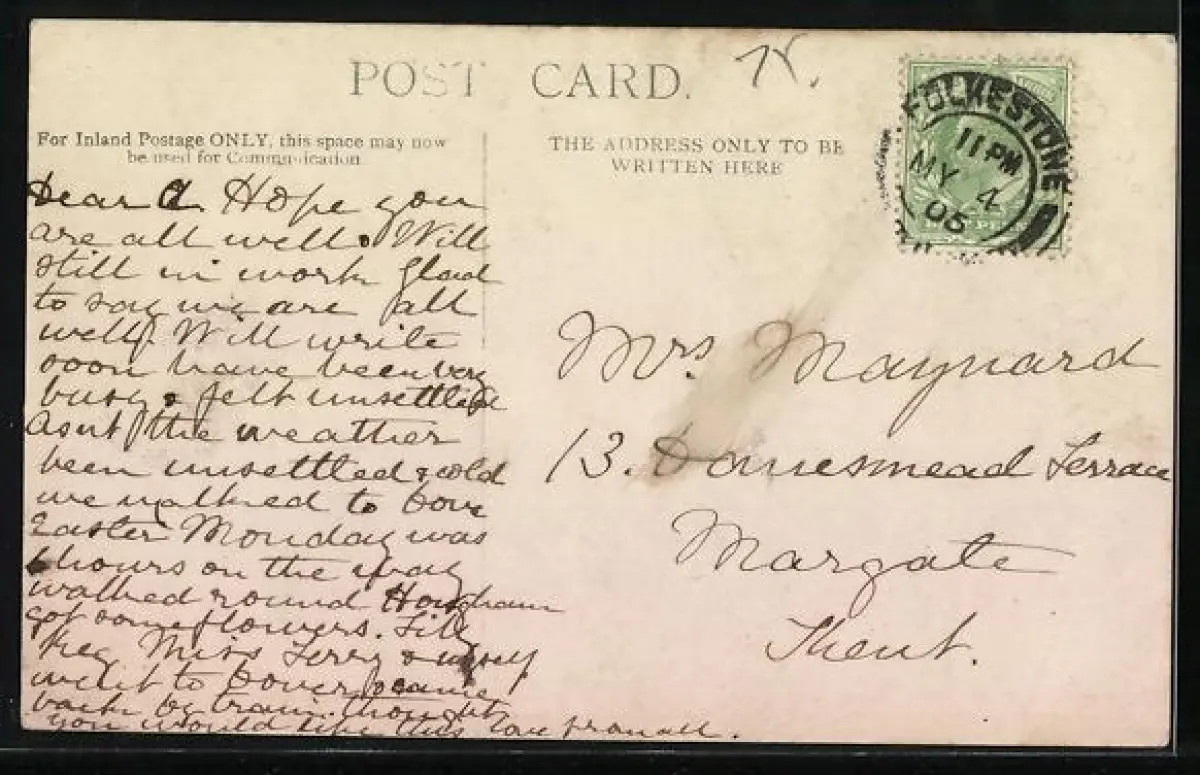 POST CARD.
For Inland Postage ONLY, this space may now
be used for Communication
THE ADDRESS ONLY TO BE
WRITTEN HERE
FOLKESTONE
11 PM
MY 4
05
Dear A. Hope you
are all well. Will
still in work Glad
to say we are all
well. Will write
soon have been very
busy & felt unsettled
the weather
been unsettled & cold
we walked to Dover
Easter Monday was
6 hours on the way
walked round Hougham
got some flowers. Lily
Reg Miss Terry & myself
went to Dover & came
back by train. thought
you would like this love from all.
Mrs. Maynard
13. Danesmead Terrace
Margate
Kent.